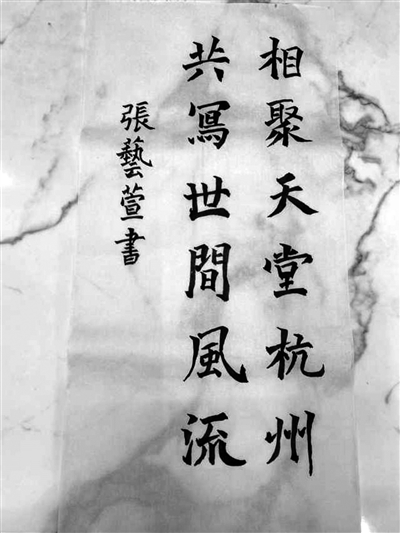 相聚天堂杭州
共寫世間風流
張藝萱書